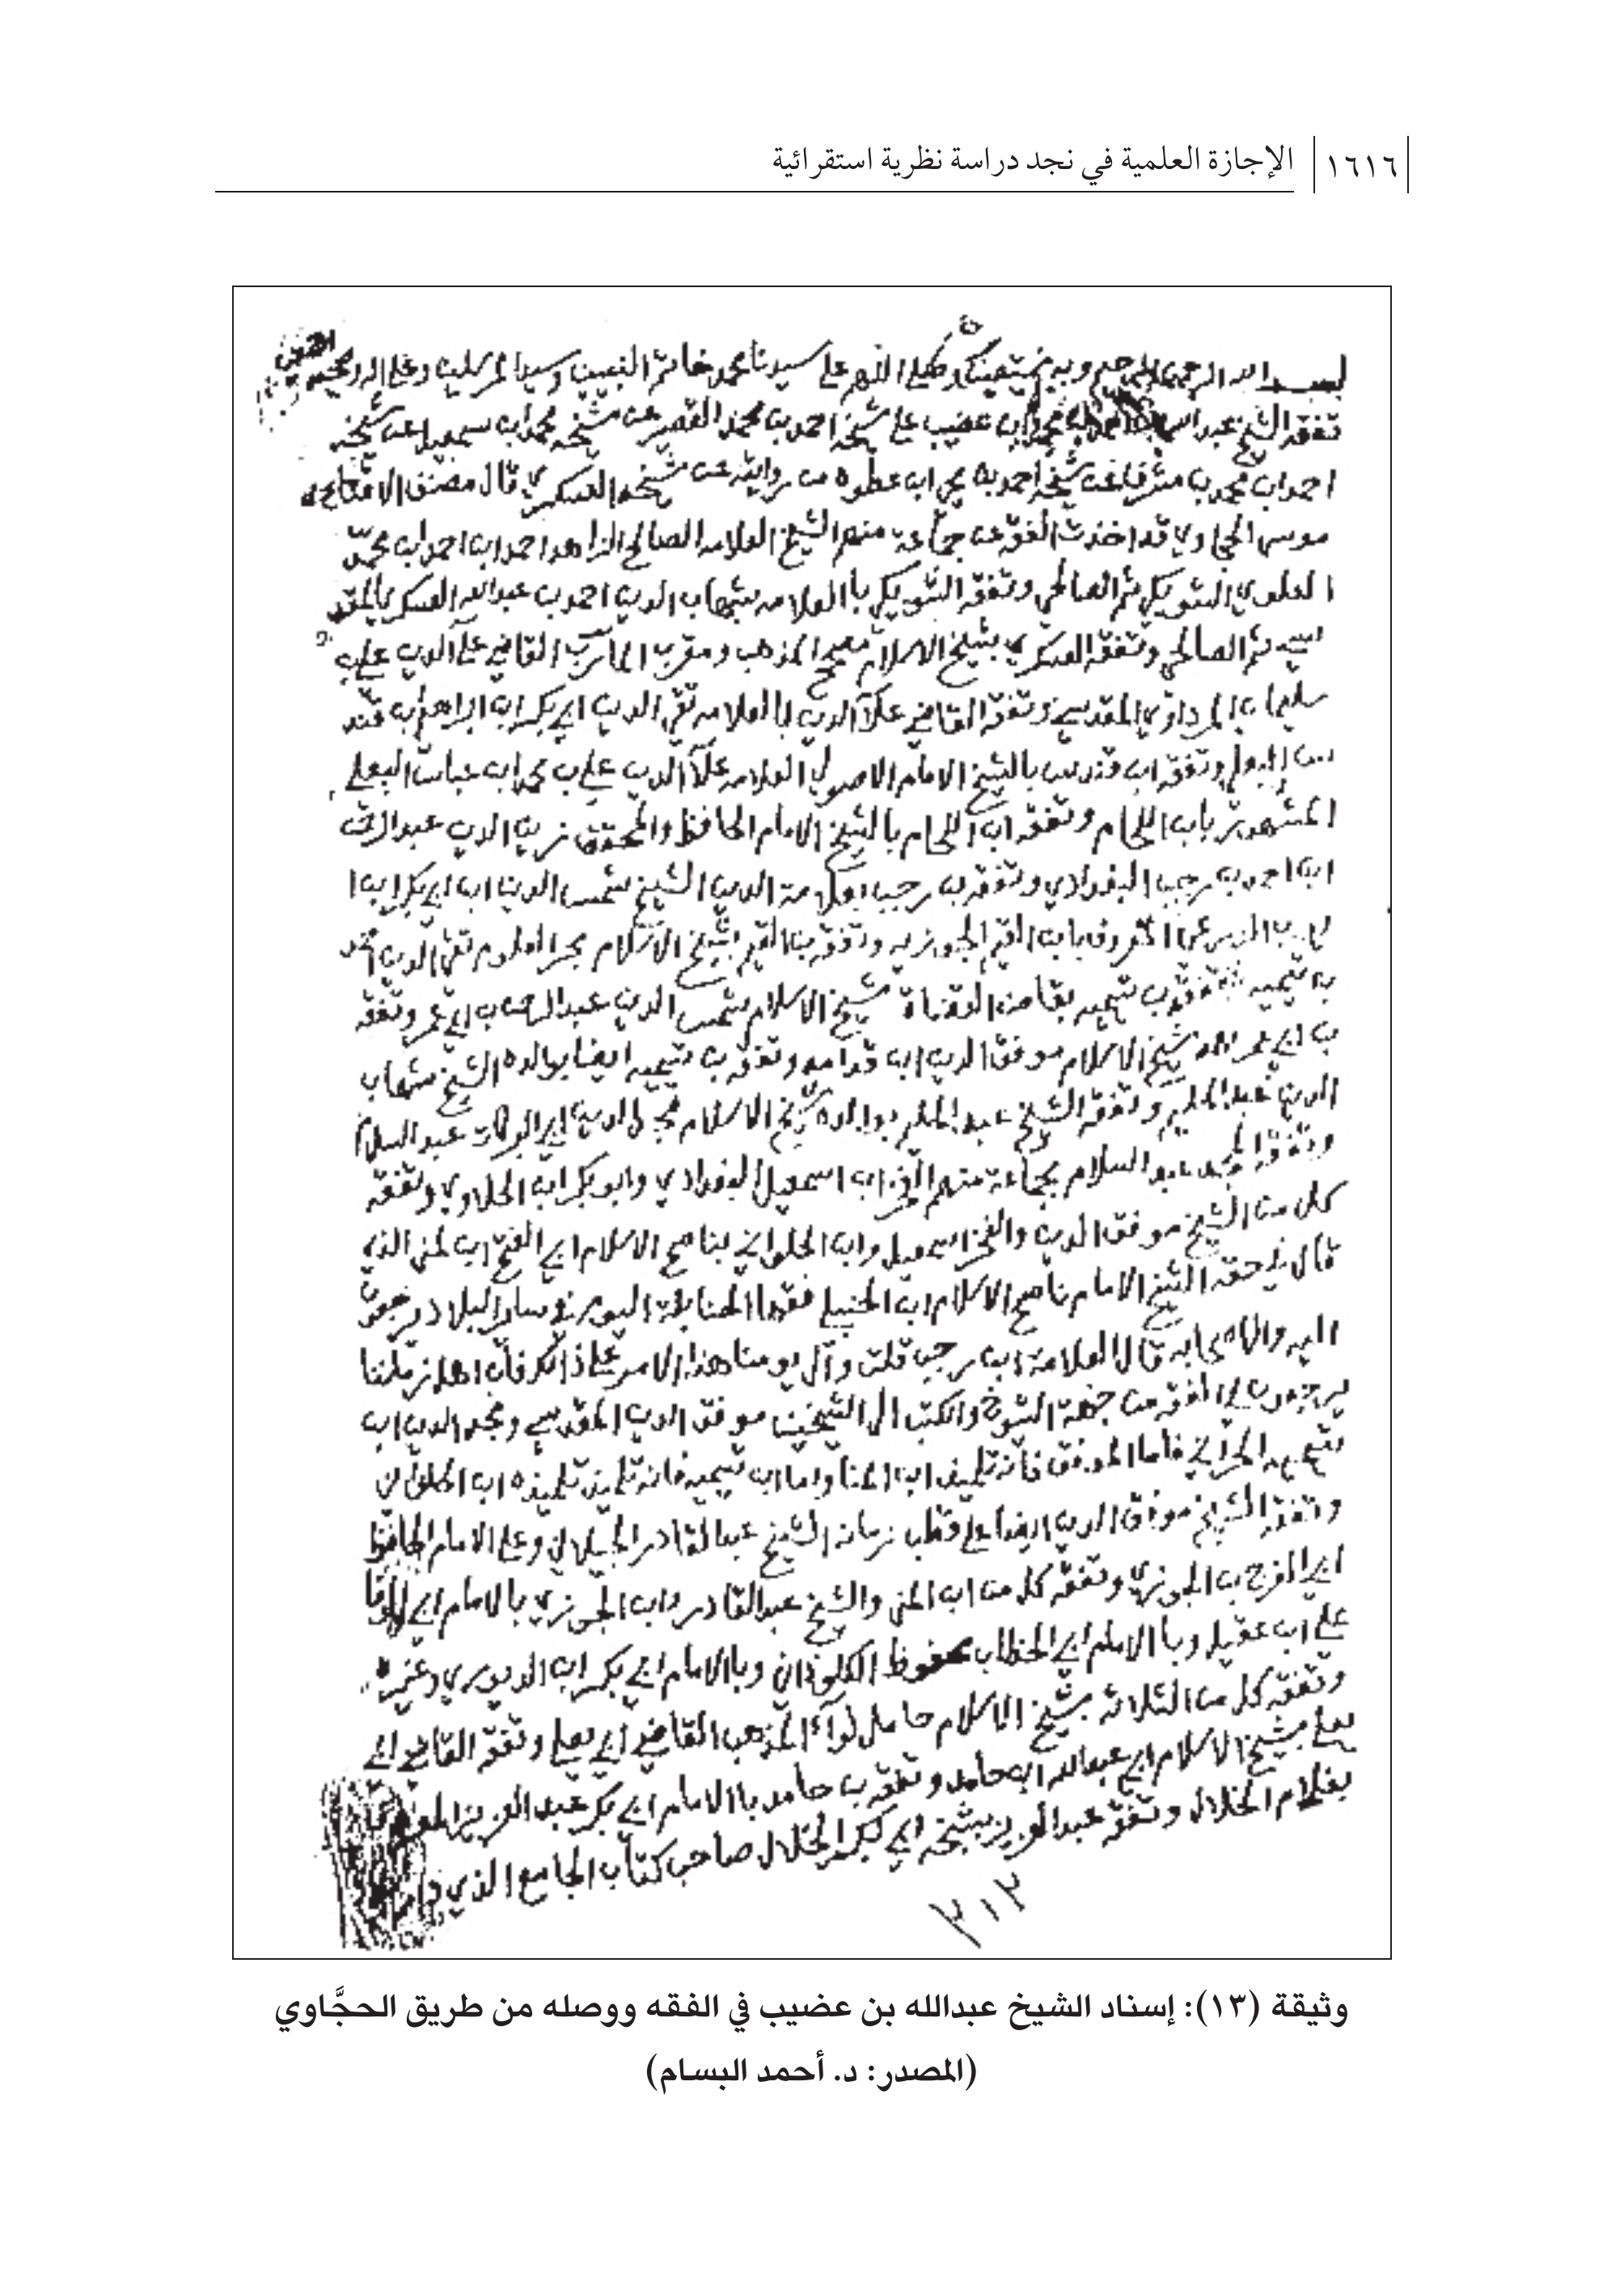 ١٦١٦ الإجازة العلمية في نجد دراسة نظرية استقرائية
بسم الله الرحمن الرحيم وبه نستعين وصلى اللهم على سيدنا محمد خاتم النبيين وسيد المرسلين وعلى اله وصحبه اجمعين
تفقه الشيخ عبدالله ابن عضيب على شيخه احمد بن محمد القصير عن شيخه محمد ابن اسمعيل عن شيخه
احمد ابن محمد بن مشرف عن شيخه احمد بن يحي ابن عطوه من روايته عن شيخه العسكري قال مصنف الاقناع
موسى الحجاوي قد اخذت الفقه عن جماعة منهم الشيخ العلامه الصالح الزاهد احمد ابن احمد ابن محمد
العلوي الشويكي ثم الصالحي وتفقه الشويكي باالعلامه شهاب الدين احمد بن عبدالله العسكري المقد
سي ثم الصالحي وتفقه العسكري بشيخ الاسلام مصحح المذهب ومقرب المارب القاضي علآالدين علي بن
سليمان المرداوي المقدسي وتفقه القاضي علآالدين باالعلامه تقي الدين ابي بكر ابن ابراهيم بن قند
س البعلي وتفقه ابن قندس بالشيخ الامام الاصولي العلامه علآالدين علي بن محمد ابن عباس البعلي
المشهور بابن اللحام وتفقه ابن اللحام بالشيخ الامام الحافظ والمحقق زين الدين عبدالرحمن
ابن احمد بن رجب البغدادي وتفقه بن رجب بعلامة الدين الشيخ شمس الدين ابن ابي بكر ابن ا
يوب الزرعي المعروف بابن القيم الجوزيه وتفقه بن القيم بشيخ الاسلام بحر العلوم تقي الدين احمد
بن تيميه وتفقه بن تيميه بقاضي القضاة شيخ الاسلام شمس الدين عبدالرحمن بن ابي عمر وتفقه
بن ابي عمر شيخ الاسلام موفق الدين ابن قدامه وتفقه بن تيميه ايضا بوالده الشيخ شهاب
الدين عبدالحليم وتفقه الشيخ عبدالحليم بوالده شيخ الاسلام مجد الدين ابي البركات عبد السلام
وتفقه المجد عبد السلام بجماعة منهم الفخر ابن اسمعيل البغدادي وابو بكر ابن الحلاوي وتفقه
كل من الشيخ موفق الدين والفخر اسمعيل وابن الحلواني بناصح الاسلام ابي الفتح ابن المني الذي
قال في حقه الشيخ الامام ناصح الاسلام ابن الحنبلي فقهاء الحنابلة اليوم في ساير البلاد يرجعون
اليه والى اصحابه قال العلامة ابن رجب قلت والى يومنا هذا الامر على ذالك فان اهل زماننا
يرجعون في الفقه من جهة الشيوخ والكتب الى الشيخين موفق الدين المقدسي ومجد الدين ابن
تيميه الحراني فاما الموفق فانه تلميذ ابن المنا واما ابن تيميه فانه تلميذ تلميذه ابن الحلواني
وتفقه الشيخ موفق الدين ايضا على قطب زمانه الشيخ عبدالقادر الجيلاني وعلى الامام الحافظ
ابي الفرج بن الجوزي وتفقه كل من ابن المني والشيخ عبدالقادر وابن الجوزي بالامام ابي الوفا
علي ابن عقيل وبا الامام ابي الخطاب محفوظ الكلوذاني وباالامام ابي بكر ابن الدينوري وغيره
وتفقه كل من الثلاثه بشيخ الاسلام حامل لوآء المذهب القاضي ابي يعلي وتفقه القاضي ابي
يعلي بشيخ الاسلام ابي عبدالله ابن حامد وتفقه بن حامد باالامام ابي بكر عبد العزيز
بغلام الخلال وتفقه عبدالعزيز بشيخه ابي بكر الخلال صاحب كتاب الجامع الذي
٣١٣
وثيقة (١٣): إسناد الشيخ عبدالله بن عضيب في الفقه ووصله من طريق الحجَّاوي
(المصدر: د. أحمد البسام)